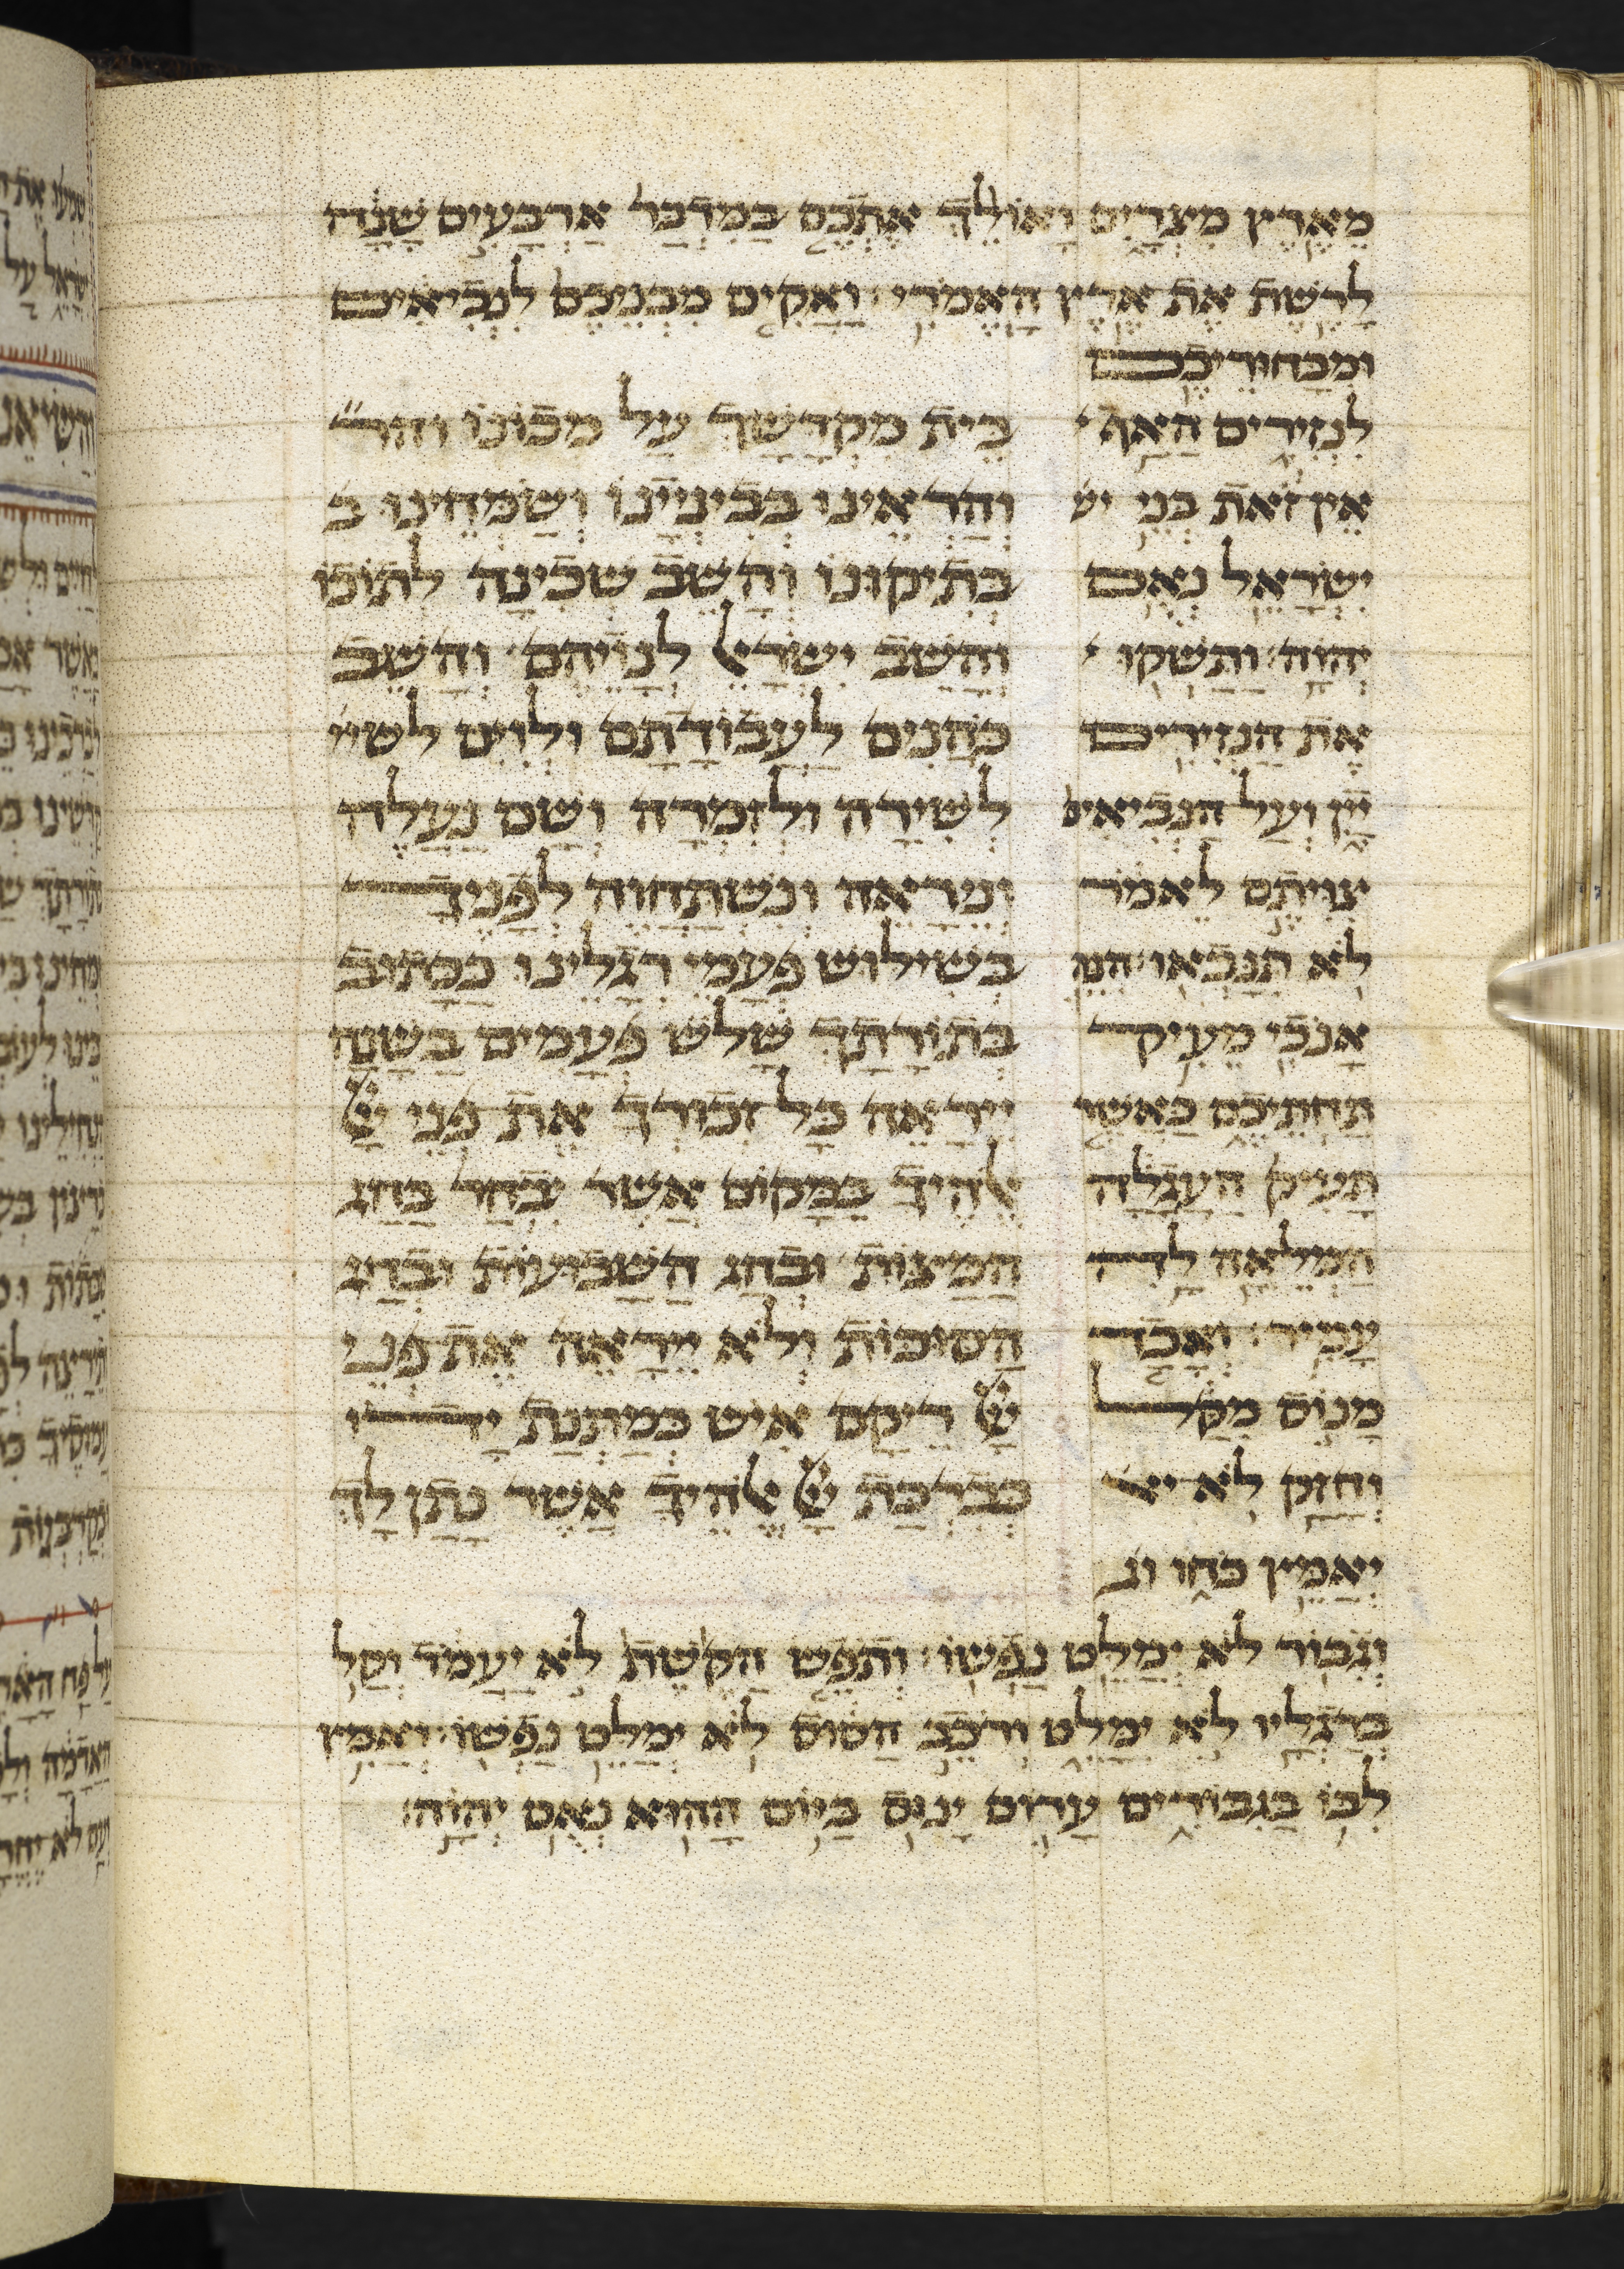 מארץ מצרים ואולך אתכם במדבר ארבעים שנה
לרשת את ארץ האמרי׃ ואקים מבניכם לנביאים
ומבחוריכם
לנזירים האף
אין זאת בני יש
ישראל נאם
יהוה׃ ותשקו
את הנזירים
יין ועל הנביאים
צויתם לאמר
לא תנבאו׃ הנה
אנכי מעיק
תחתיכם כאשר
תעיק העגלה
המלאה לה
עמיר׃ ואבד
מנוס מקל
וחזק לא יא
יאמץ כחו וג
וגבור לא ימלט נפשו׃ ותפש הקשת לא יעמד וקל
ברגליו לא ימלט ורכב הסוס לא ימלט נפשו׃ ואמיץ
לבו בגבורים ערום ינוס ביום ההוא נאם יהוה׃
בית מקדשך על מכונו והר״
והראינו בבינייניו ושמחינו ב
בתיקונו והשב שכינה לתוכו
והשב ישראל לנויהם׃ והשב
כהנים לעבודתם ולוים לשי
לשירה ולזמרה ושם נעלה
ונראה ונשתחוה לפניך
בשילוש פעמי רגלינו ככתוב
בתורתך שלש פעמים בשנה
יראה כל זכורך את פני יי
אלהיך במקום אשר יבחר בחג
המצות ובחג השבועות ובחג
הסוכות ולא יראה את פני
יי ריקם איש כמתנת ידו
כברכת יי אלהיך אשר נתן לך